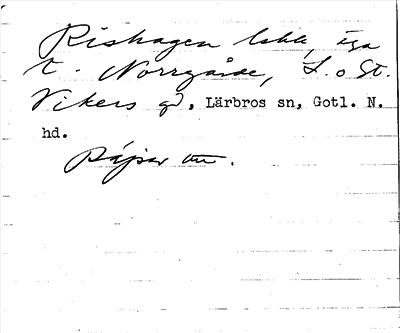 Rishagen lskh, äga
t. Norrgårde, L. o St.
Vikers gd, Lärbros sn, Gotl. N.
hd.